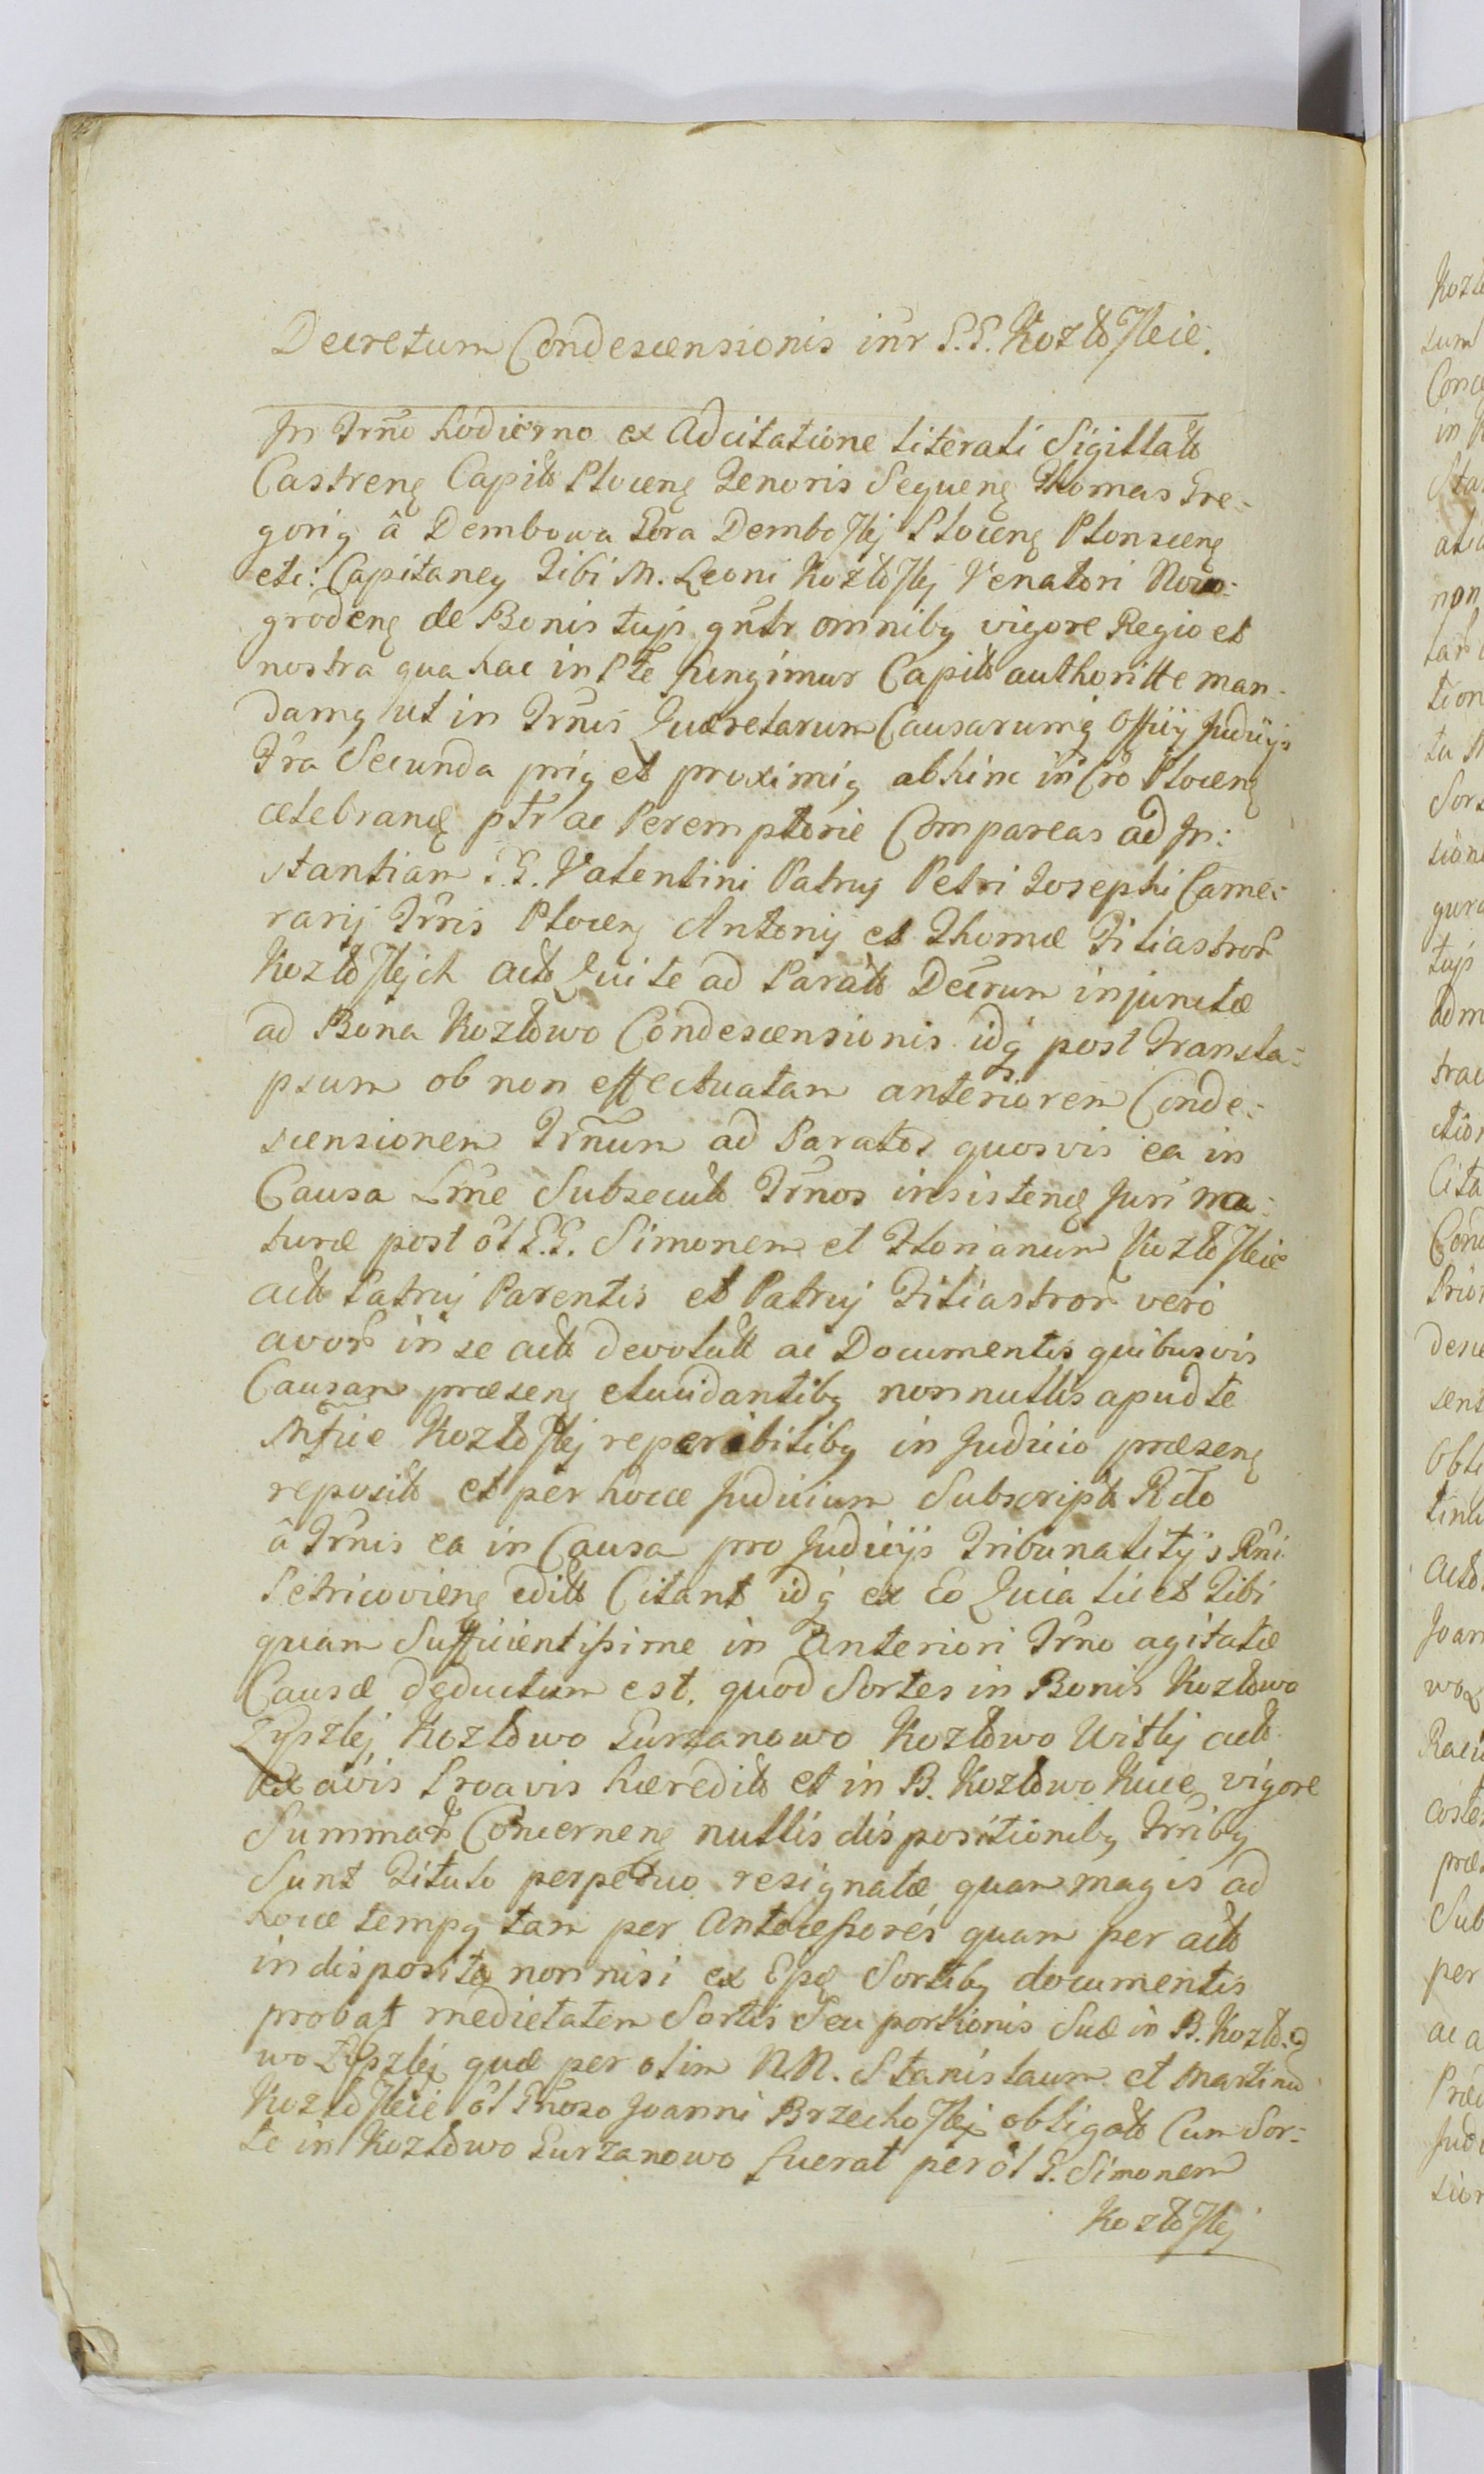 Decretum Condescensionis intr G.G. Kozłoskie.
In Trno hodierno ex Adcitatione literali Sigillatt
Castreng Capitt Ploceng Tenoris Sequeng Thomas Gre-
gorig â Dembowa Gora Demboskj Ploceng Plonsceng
etc: Capitaneg Tibi M. Leoni Kozłoskj Venatori Nowo-
grodeng de Bonis tujs gnltr omnibg vigore Regio et
nostra qua hac in Pte fungimur Capitt authoritte man-
damg ut in Trnis Quæretarum Causarumq Officij Judicijs
Fra Secunda prig et proximig abhinc in Cro Ploceng
celebrang ptr ac Peremptorie Compareas ad In:
stantiam G.G. Valentini Patruj Petri Josephi Came-
rarij Trris Ploceng Antonij et Thomæ Filiastror
Kozłoskjch actt Qui te ad Paratt Decrum injunctæ
ad Bona Kozłowo Condescensionis idq post Transla-
psum ob non effectuatam anteriorem Conde-
scensionem Trnum ad Paratos quosvis ea in
Causa Lme Subsecutt Trnos insisteng Juri ma-
turæ post ol G.G. Simonem et Florianum Kozłoskie
actt Patruj Parentis et Patruj Filiastror vero
avor in se actt devolutt ac Documentis quibusvis
Causam præseng elucidantibg nonnullis apud te
Mfice Kozłoskj reperibilibg in Judicio præseng
reposItt et per hocce Judicium Subscriptt Rcto
â Trnis ea in Causa pro Judicijs Tribunalitijs Rni
Petricovieng editt Citant idq ex Eo Quia licet Tibi
quam Sufficientissime in Anteriori Trno agitatæ
Causæ deductum est, quod Sortes in Bonis Kozłowo
Kozłowo Gurzanowo Kozłowo Witkj actt
ex avis Proavis hæreditt et in B. Kozłowo vigore
Summar Concerneng nullis dispositionibg Trribg
Sunt Titulo perpetuo resignatæ quam magis ad
hocce tempg tam per Antecessores quam per actt
indisposita nonnisi ex Epg Sortibg documentis
probat medietatem Sortis Seu portionis Suæ in B. Kozło-
wo quæ per olim NN. Stanislaum et Martinu
Kozłoskie ol Gnoso Joanni Brzechoskj obligatt Cum Sor-
te in Kozłowo Gurzanowo fuerat per ol G. Simonem
Kozłoskj